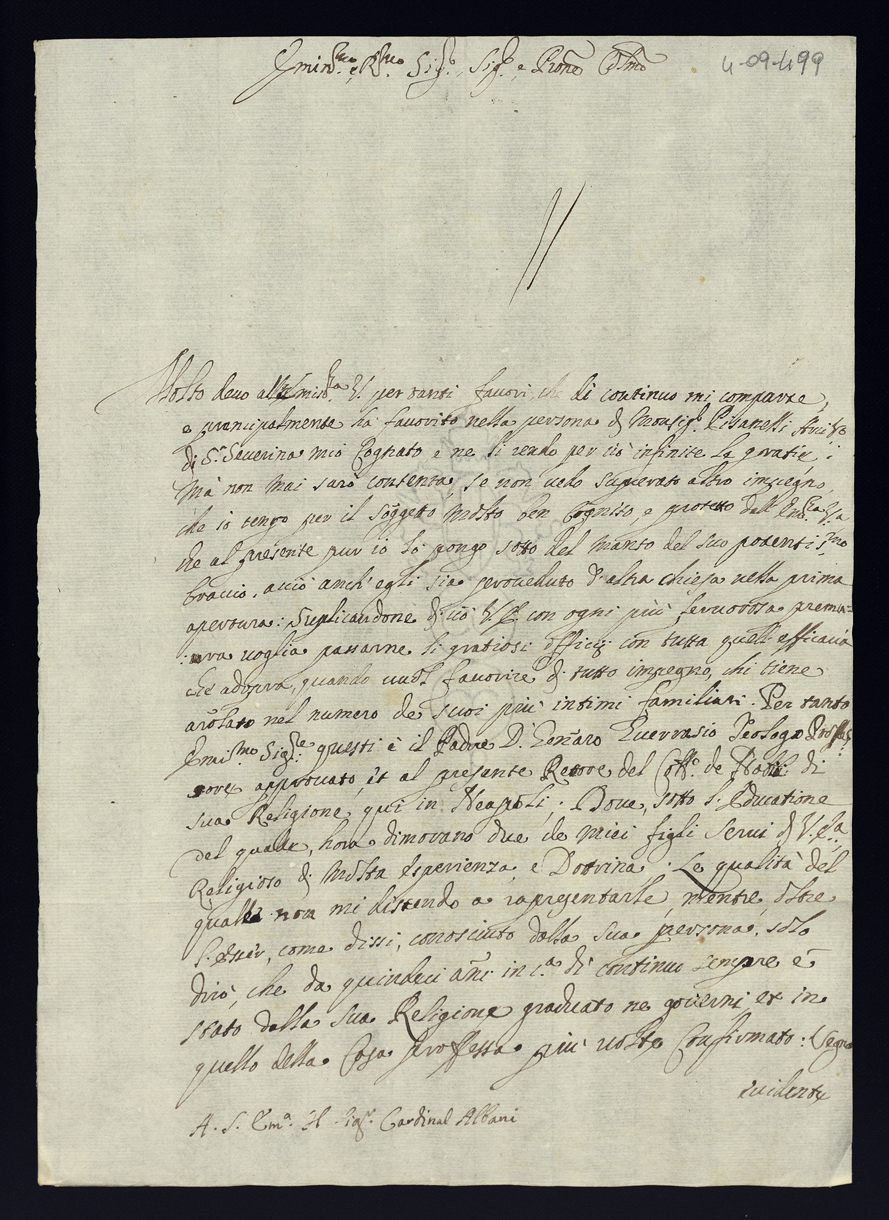 Emin.mo e R.mo Sig.r, Sig.r, e Prone Colmo
4-09-499
Molto devo all' Emin.za V. per tanti favori, che di continuo mi comparte,
e principalmente ha favorito nella persona di Monsig.r Pisanelli
di S.ta Severina mio Cognato e ne li rendo per ciò infinite le gratie,
Mà non mai sarò contenta, se non vedo superato altro impegno,
che io tengo per il soggetto molto ben cognito, e protetto dall' Em.za V.a
che al presente pur io lo pongo sotto del manto del suo potentis.mo
braccio, acciò anch' egli sia proveduto d'altra chiesa nella prima
apertura: Suplicandone di ciò V. E. con ogni più fervorosa premu=
:ra voglia passarne li gratiosi officij con tutta quell' efficacia
ch' adopra, quando vuol favorire di tutto impegno, chi tiene
arolato nel numero de suoi più intimi familiari. Per tanto
Emin.mo Sig.re questi è il Padre D. Gennaro Guerrasio Teologo Profes
sore approvato, et al presente Retore del Coll.o de Nobili di
sua Religione qui in Neapoli; Dove, sotto l' Educatione
del quale, hora dimorano due de miei figli servi di V. E.za
Religioso di Molta esperienza, e Dottrina. Le qualità del
quale non mi distendo a rapresentarle, mentre, oltre
l' esser, come dissi, conosciuto dalla sua persona, solo
dirò, che da quindeci anni in c.a di continuo sempre è
stato dalla sua Religione graduato ne governi et in
quello della Casa professa più volte Confirmato: Segno
evidente
A. S. Em.a Il Sig.r Cardinal Albani